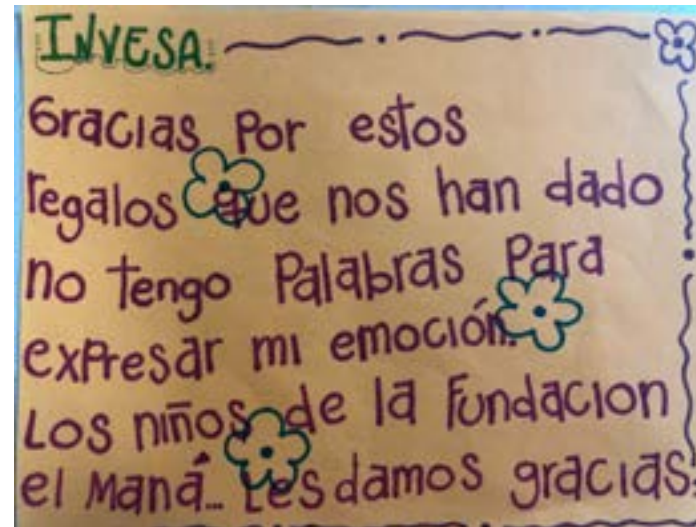 INVESA.
Gracias Por estos
regalos que nos han dado
no tengo Palabras Para
expresar mi emoción.
Los niños de la Fundacion
el Maná... Les damos gracias.